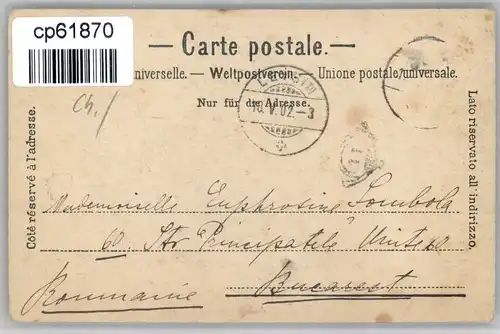 cp61870
— Carte postale. —
universelle. — Weltpostverein. — Unione postale universale.
Nur für die Adresse.
Côté réservé à l'adresse.
Lato riservato all' indirizzo.
Ch./
V.02.–3
Mademoiselle Euphrosine Sombola
60 Str. Principatele Unite 60
Bucarest
Roumanie